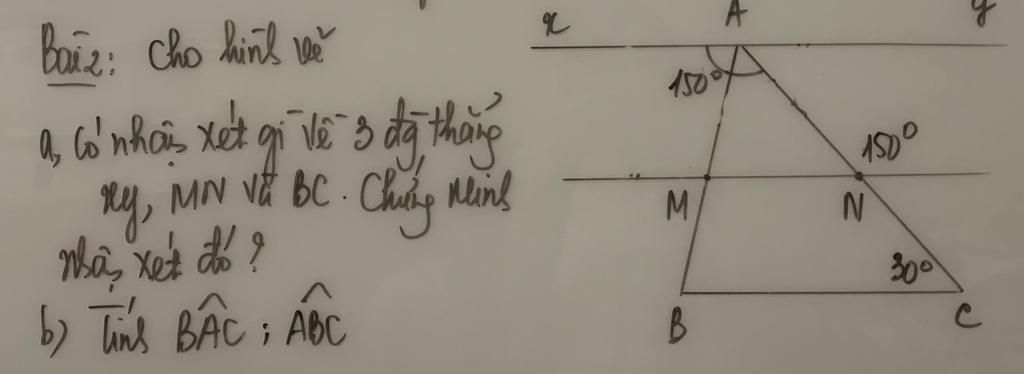 Bài 2: Cho hình vẽ
a, Có nhận xét gì về 3 đg thẳng
xy, MN và BC. Chứng Minh
nhận xét đó?
b) Tính BÂC; ABC
x A y
150°
150°
M N
30°
B C